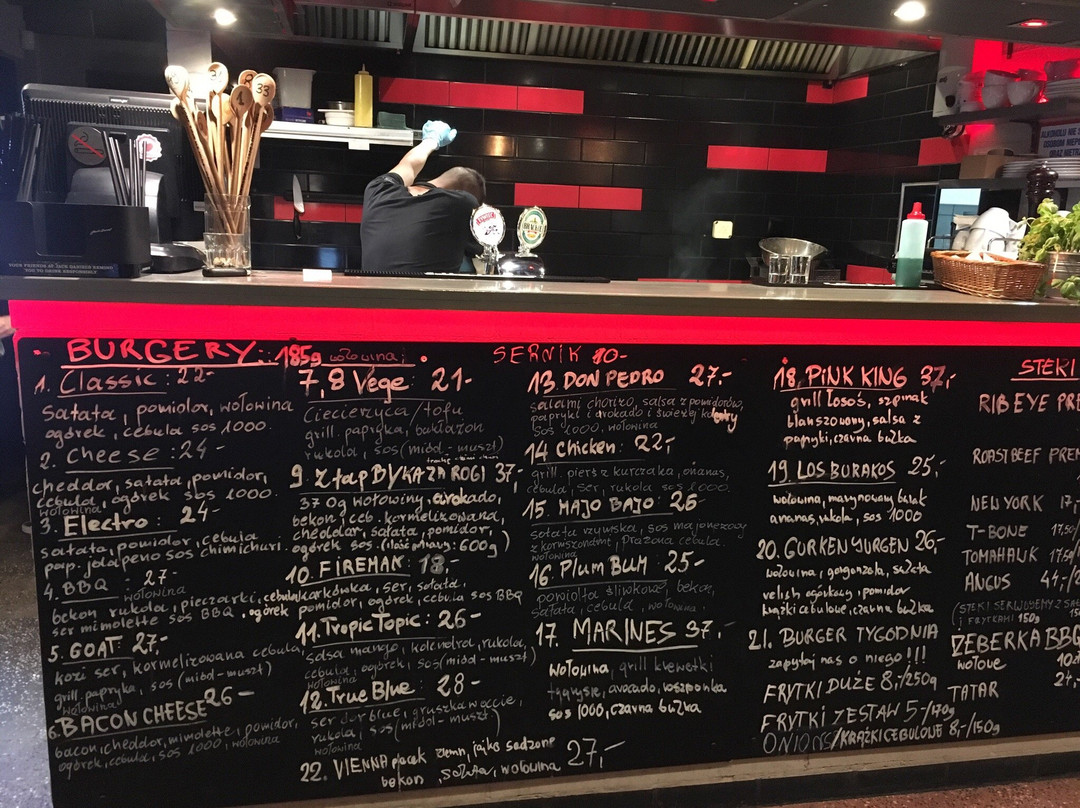 BURGERY: 185g wołowina;
1. Classic: 22-
sałata, pomidor, wołowina
ogórek, cebula sos 1000.
2. Cheese: 24-
cheddar, sałata, pomidor,
cebula, ogórek sos 1000.
wołowina
3. Electro: 24-
sałata, pomidor, cebula
pap. jalapeno sos chimichuri.
4. BBQ: 27.-
wołowina
bekon rukola, pieczarki, cebula
ser mimolette sos BBQ, ogórek
5. GOAT: 27,-
kozi ser, karmelizowana cebula,
grill. papryka, sos (miód-muszt)
wołowina
6. BACON CHEESE 26-
bacon, cheddar, mimolette, pomidor,
ogórek, cebula, sos 1000, wołowina
7,8 Vege: 21-
Ciecierzyca/tofu
grill. papryka, bakłażan
rukola, sos (miód-muszt)
9. Złap BYKA ZA ROGI 37,-
370g wołowiny, avokado,
bekon, ceb. karmelizowana,
cheddar, sałata, pomidor,
ogórek sos. 600g)
10. FIREMAN: 18,-
karkówka, ser, sałata,
pomidor, ogórek, cebula sos BBQ
11. Tropic Topic: 26-
salsa mango, kolendra, rukola,
cebula, ogórek, sos (miód-muszt)
wołowina
12. True Blue: 28-
ser lur blue, gruszka w occie,
rukola, sos (miód-muszt)
wołowina
22. VIENNA placek ziemn, jajko sadzone 27,-
bekon, sałata, wołowina
SERNIK 10-
13. DON PEDRO 27.-
salami chorizo, salsa z pomidorów,
papryki i avokado i świeżej kolendry
sos 1000, wołowina
14 Chicken: 22,-
grill. pierś z kurczaka, ananas,
cebula, ser, rukola sos 1000.
15. MAJO BAJO: 26-
sałata rzymska, sos majonezowy
z korniszonami, prażona cebula.
wołowina
16. Plum BUM: 25-
powidła śliwkowe, bekon,
sałata, cebula, wołowina,
17. MARINES 37,-
wołowina, grill krewetki
tygrysie, avocado, roszponka
sos 1000, czarna bułka
18. PINK KING 37,-
grill łosoś, szpinak
blanszowany, salsa z
papryki, czarna bułka
19. LOS BURAKOS 25,-
wołowina, marynowany burak
ananas, rukola, sos 1000
20. GURKEN YURGEN 26,-
wołowina, gorgonzola, sałata
velish ogórkowy, pomidor
krążki cebulowe, czarna bułka
21. BURGER TYGODNIA
zapytaj nas o niego!!!
FRYTKI DUŻE 8,-/250g
FRYTKI ZESTAW 5-/170g
ONIONS/KRĄŻKI CEBULOWE 8,-/150g
STEKI
RIB EYE PRE
ROAST BEEF PREM
NEW YORK 17,-
T-BONE 17,50/
TOMAHAUK 17,50/
ANGUS 44,-/
(STEKI SERWUJEMY Z SA
I FRYTKAMI 150g
ŻEBERKA BBQ
wołowe
TATAR
33